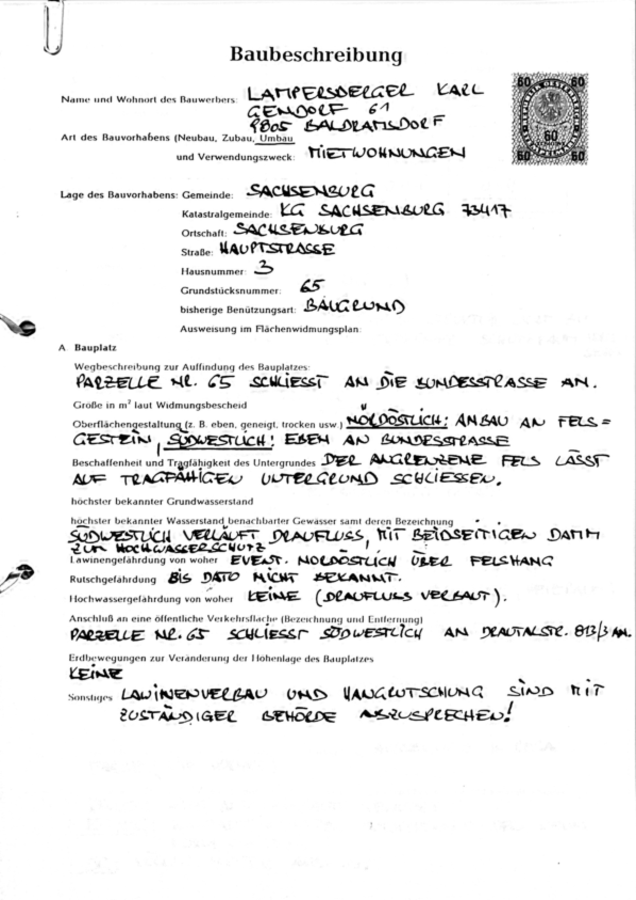 Baubeschreibung
60 60
60
60 60
Name und Wohnort des Bauwerbers: LAMPERSBERGER KARL
GENDORF 61
9805 BALDRAMSDORF
Art des Bauvorhabens (Neubau, Zubau, Umbau
und Verwendungszweck: MIETWOHNUNGEN
Lage des Bauvorhabens: Gemeinde: SACHSENBURG
Katastralgemeinde: KG SACHSENBURG 73417
Ortschaft: SACHSENBURG
Straße: HAUPTSTRASSE
Hausnummer: 3
Grundstücksnummer: 65
bisherige Benützungsart: BAUGRUND
Ausweisung im Flächenwidmungsplan:
A. Bauplatz
Wegbeschreibung zur Auffindung des Bauplatzes:
PARZELLE NR. 65 SCHLIESST AN DIE BUNDESSTRASSE AN.
Größe in m² laut Widmungsbescheid
Oberflächengestaltung (z. B. eben, geneigt, trocken usw.) NORDÖSTLICH: ANBAU AN FELS=
GESTEIN, SÜDWESTLICH: EBEN AN BUNDESSTRASSE
Beschaffenheit und Tragfähigkeit des Untergrundes DER ANGRENZENE FELS LÄSST
AUF TRAGFÄHIGEN UNTERGRUND SCHLIESSEN.
höchster bekannter Grundwasserstand
höchster bekannter Wasserstand benachbarter Gewässer samt deren Bezeichnung
SÜDWESTLICH VERLÄUFT DRAUFLUSS, MIT BEIDSEITIGEN DAMM
ZUM HOCHWASSERSCHUTZ
Lawinengefährdung von woher EVENT. NORDÖSTLICH ÜBER FELSHANG
Rutschgefährdung BIS DATO NICHT BEKANNT.
Hochwassergefährdung von woher KEINE (DRAUFLUSS VERBAUT).
Anschluß an eine öffentliche Verkehrsfläche (Bezeichnung und Entfernung)
PARZELLE NR. 65 SCHLIESST SÜDWESTLICH AN DRAUTALSTR. 813/3 AN.
Erdbewegungen zur Veränderung der Höhenlage des Bauplatzes
KEINE
Sonstiges LAWINENVERBAU UND HANGRUTSCHUNG SIND MIT
ZUSTÄNDIGER BEHÖRDE ABZUSPRECHEN!